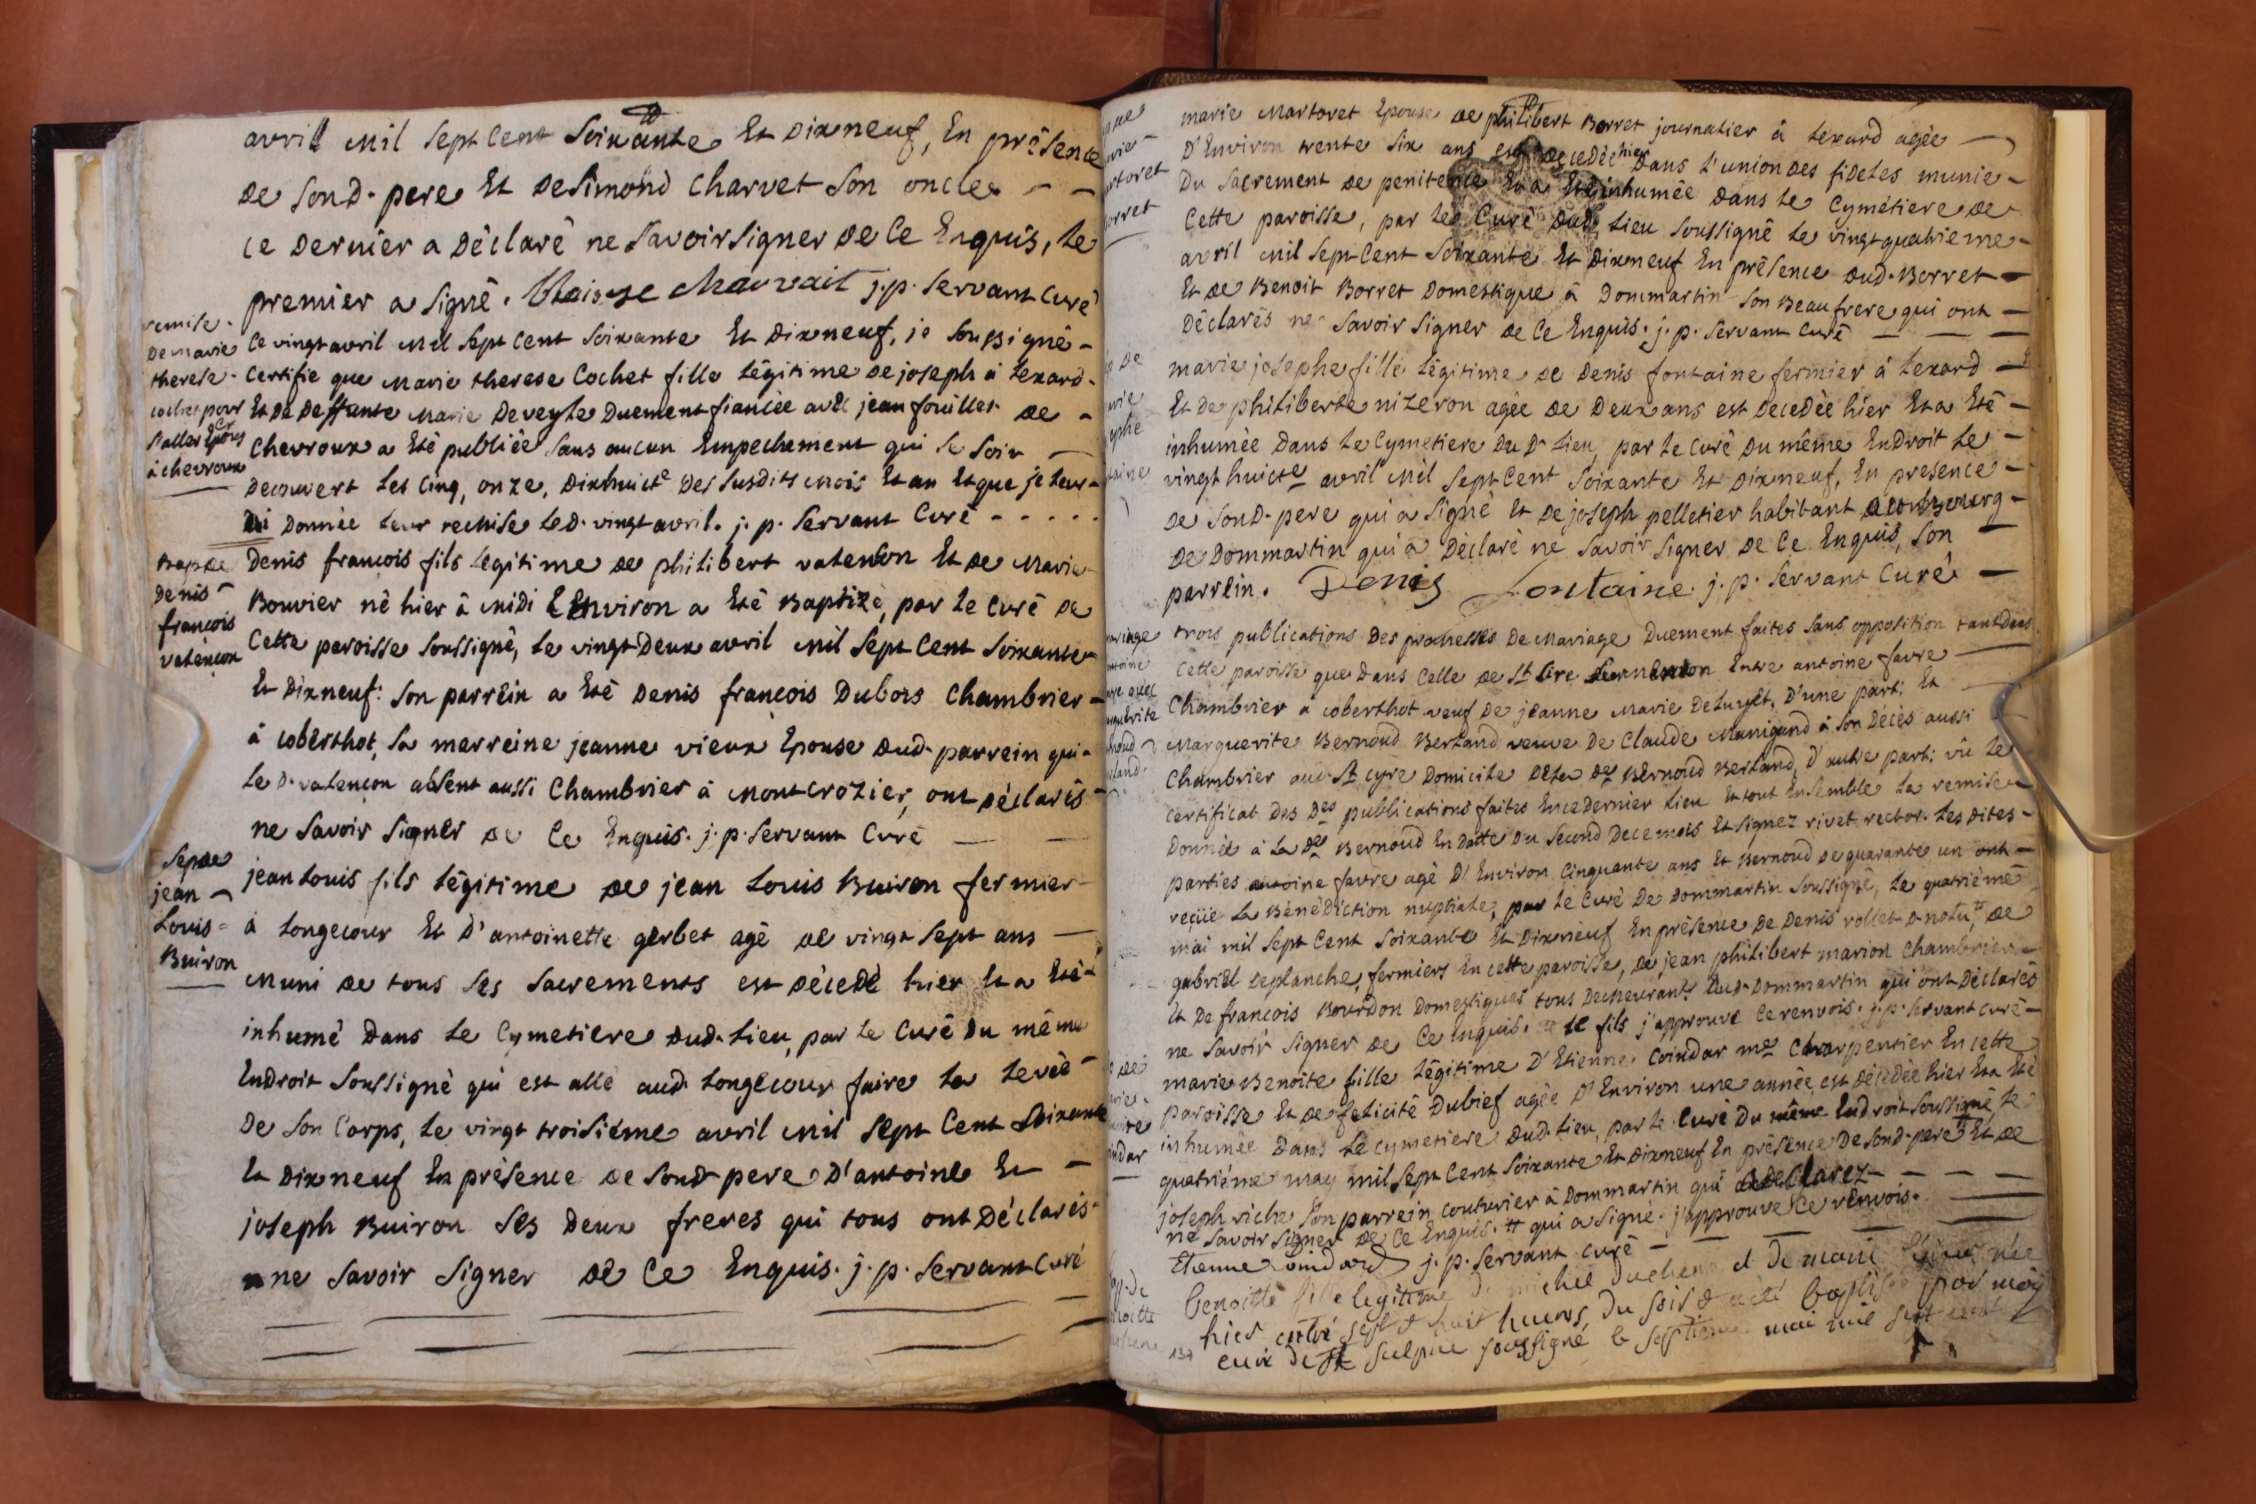 avril mil sept Cent Soixante Et Dixneuf, En présence
De Sond. pere Et De Simond Charvet Son oncle
ce Dernier a Déclaré ne Savoir Signer De Ce Enquis, Le
premier a Signé. j. p. Servant Curé
remise
De marie
therese
cochet pour
S'aller Epous
à chevroux
Ce vingt avril Mil Sept Cent Soixante Et Dixneuf, je Soussigné
Certifie que Marie therese Cochet fille Légitime De joseph à Lexard
Et De Deffunte Marie Deveyle Duement fiancée avec jean fouillet De
Chevroux a Eté publiée Sans aucun Empechement qui Se Soit
Decouvert Les Cinq, onze, Dixhuicte Des Susdits Mois Et an Et que je Leur
ai Donnée Leur remise Le D. vingt avril. j. p. Servant Curé
Bap De
Denis
françois
vatençon
Denis françois fils Légitime De philibert vatençon Et De Marie
Bouvier né hier à Midi Environ a Eté Baptizé, par Le Curé De
Cette paroisse Soussigné, Le vingt Deux avril Mil Sept Cent Soixante
Et Dixneuf: Son parrein a Eté Denis françois Dubois Chambrier
à Loberthot, Sa marreine jeanne vieux Epouse Dud. parrein qui
Le D. vatençon absent aussi Chambrier à Montcrozier, ont Déclarés
ne Savoir Signer De Ce Enquis. j. p. Servant Curé
Sep De
jean
Louis
Buiron
jean Louis fils Légitime De jean Louis Buiron fermier
à Longecour Et D'antoinette gerbet agé De vingt Sept ans
Muni De tous Ses Sacrements est Décedé hier Et a Eté
inhumé Dans Le Cymetiere Dud. Lieu, par Le Curé Du même
Endroit Soussigné qui est allé aud. Longecour faire La Levée
De Son Corps, Le vingt troisiéme avril Mil Sept Cent Soixante
Et Dixneuf En présence De Sond. pere D'antoine Et
joseph Buiron Ses Deux freres qui tous ont Déclarés
ne Savoir Signer De Ce Enquis. j. p. Servant Curé
marie Martoret Epouse De philibert Borret journalier à Lexard agée
D'Environ trente Six ans est Decedée hier Dans l'union Des fideles munie
Du Sacrement De penitence Et a Eté inhumée Dans Le Cymetiere De
Cette paroisse, par Le Curé Dud. Lieu Soussigné Le vingt quatrieme
avril Mil Sept Cent Soixante Et Dixneuf En présence Dud. Borret
Et De Benoit Borret Domestique à Dommartin Son Beaufrere qui ont
Déclarés ne Savoir Signer De Ce Enquis. j. p. Servant Curé
marie josephe fille Légitime De Denis fontaine fermier à Lexard
Et De philiberte nizeron agée De Deux ans est Decedée hier Et a Eté
inhumée Dans Le Cymetiere Du Dt Lieu, par Le Curé Du même Endroit Le
vingt huicte avril Mil Sept Cent Soixante Et Dixneuf, En presence
De Sond. pere qui a Signé Et De joseph pelletier habitant Bourg
De Dommartin qui a Déclaré ne Savoir Signer De Ce Enquis, Son
parrein. Denis fontaine j. p. Servant Curé
trois publications Des promesses De Mariage Duement faites Sans opposition tant Dans
Cette paroisse que Dans Celle De St Cire Entre antoine favre
Chambrier à Loberthot veuf De jeanne Marie D'une part; Et
Marguerite Bernoud Berland veuve De Claude Munigand à Son Décès aussi
Chambrier aud. St Cyre Domicile De La De Bernoud Berland, D'autre part; vû Le
Certificat Des Des publications faites En ce Dernier Lieu Et tout Ensemble La remise
Donnée à La De Bernoud En Datte Du Second De ce mois Et Signez rivet rector. Les Dites
parties antoine favre agé D'Environ Cinquante ans Et Bernoud De quarante un ont
reçüe La Bénédiction nuptiale, par Le Curé De Dommartin Soussigné, Le quatriéme
mai mil Sept Cent Soixante Et Dixneuf En présence De Denis vollet De
gabriel Deplanche, fermiers En cette paroisse, De jean philibert marion Chambrier
Et De francois Bourdon Domestiques tous Demeurants aud. Dommartin qui ont Déclarés
ne Savoir Signer De Ce Enquis. fils j'approuve Ce renvois. j. p. Servant Curé
marie Benoite fille Légitime D'Etienne Coindar me Charpentier En cette
paroisse Et De felicité Dubief agée D'Environ une année, est Décédée hier Et a Eté
inhumée Dans Le Cymetiere Dud. Lieu, par Le Curé Du même Endroit Soussigné, Le
quatriéme may mil Sept Cent Soixante Et Dixneuf En présence De Sond. pere # Et De
joseph riche Son parrein couturier à Dommartin qui a declarez
ne Savoir Signer De Ce Enquis. # qui a Signé. j'approuve Ce renvois.
Etienne Coindard j. p. Servant Curé
benoitte fille legitime de michel et de marie née
hier entre sept et huit heures du soir a eté baptisée par moy
curé de St sulpice soussigné le septieme mai mil sept cent
137